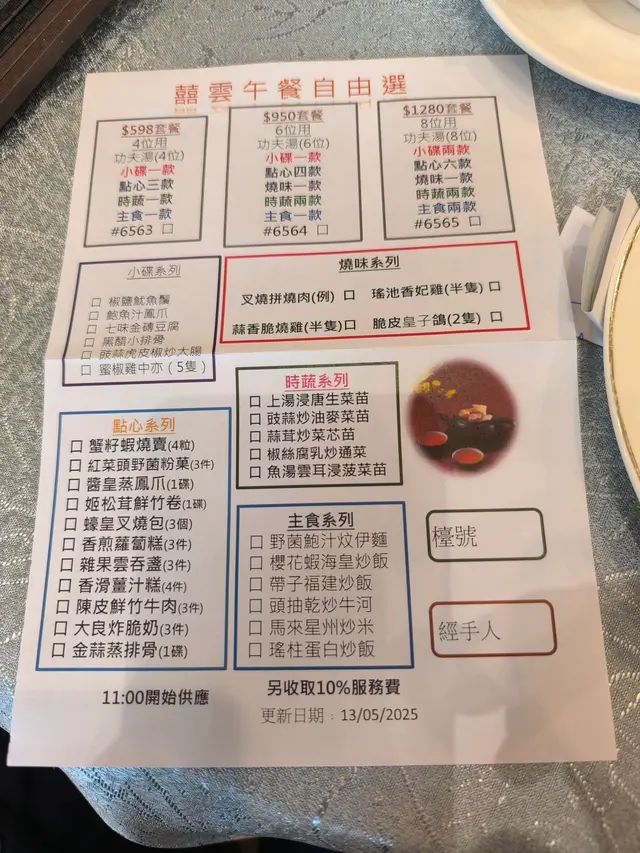 囍雲午餐自由選
$598套餐
4位用
功夫湯(4位)
小碟一款
點心三款
時蔬一款
主食一款
#6563 口
$950套餐
6位用
功夫湯(6位)
小碟一款
點心四款
燒味一款
時蔬兩款
主食一款
#6564 口
$1280套餐
8位用
功夫湯(8位)
小碟兩款
點心六款
燒味一款
時蔬兩款
主食兩款
#6565 口
小碟系列
口 椒鹽魷魚鬚
口 鮑魚汁鳳爪
口 七味金磚豆腐
口 黑醋小排骨
口 豉蒜虎皮椒炒大腸
口 蜜椒雞中亦(5隻)
燒味系列
叉燒拼燒肉(例) 口 瑤池香妃雞(半隻) 口
蒜香脆燒雞(半隻)口 脆皮皇子鴿(2隻) 口
時蔬系列
口 上湯浸唐生菜苗
口 豉蒜炒油麥菜苗
口 蒜茸炒菜芯苗
口 椒絲腐乳炒通菜
口 魚湯雲耳浸菠菜苗
點心系列
口 蟹籽蝦燒賣(4粒)
口 紅菜頭野菌粉菓(3件)
口 醬皇蒸鳳爪(1碟)
口 姬松茸鮮竹卷(1碟)
口 蠔皇叉燒包(3個)
口 香煎蘿蔔糕(3件)
口 雜果雲吞盞(3件)
口 香滑薑汁糕(4件)
口 陳皮鮮竹牛肉(3件)
口 大良炸脆奶(3件)
口 金蒜蒸排骨(1碟)
主食系列
口 野菌鮑汁炆伊麵
口 櫻花蝦海皇炒飯
口 帶子福建炒飯
口 頭抽乾炒牛河
口 馬來星州炒米
口 瑤柱蛋白炒飯
檯號
經手人
11:00開始供應
另收取10%服務費
更新日期:13/05/2025